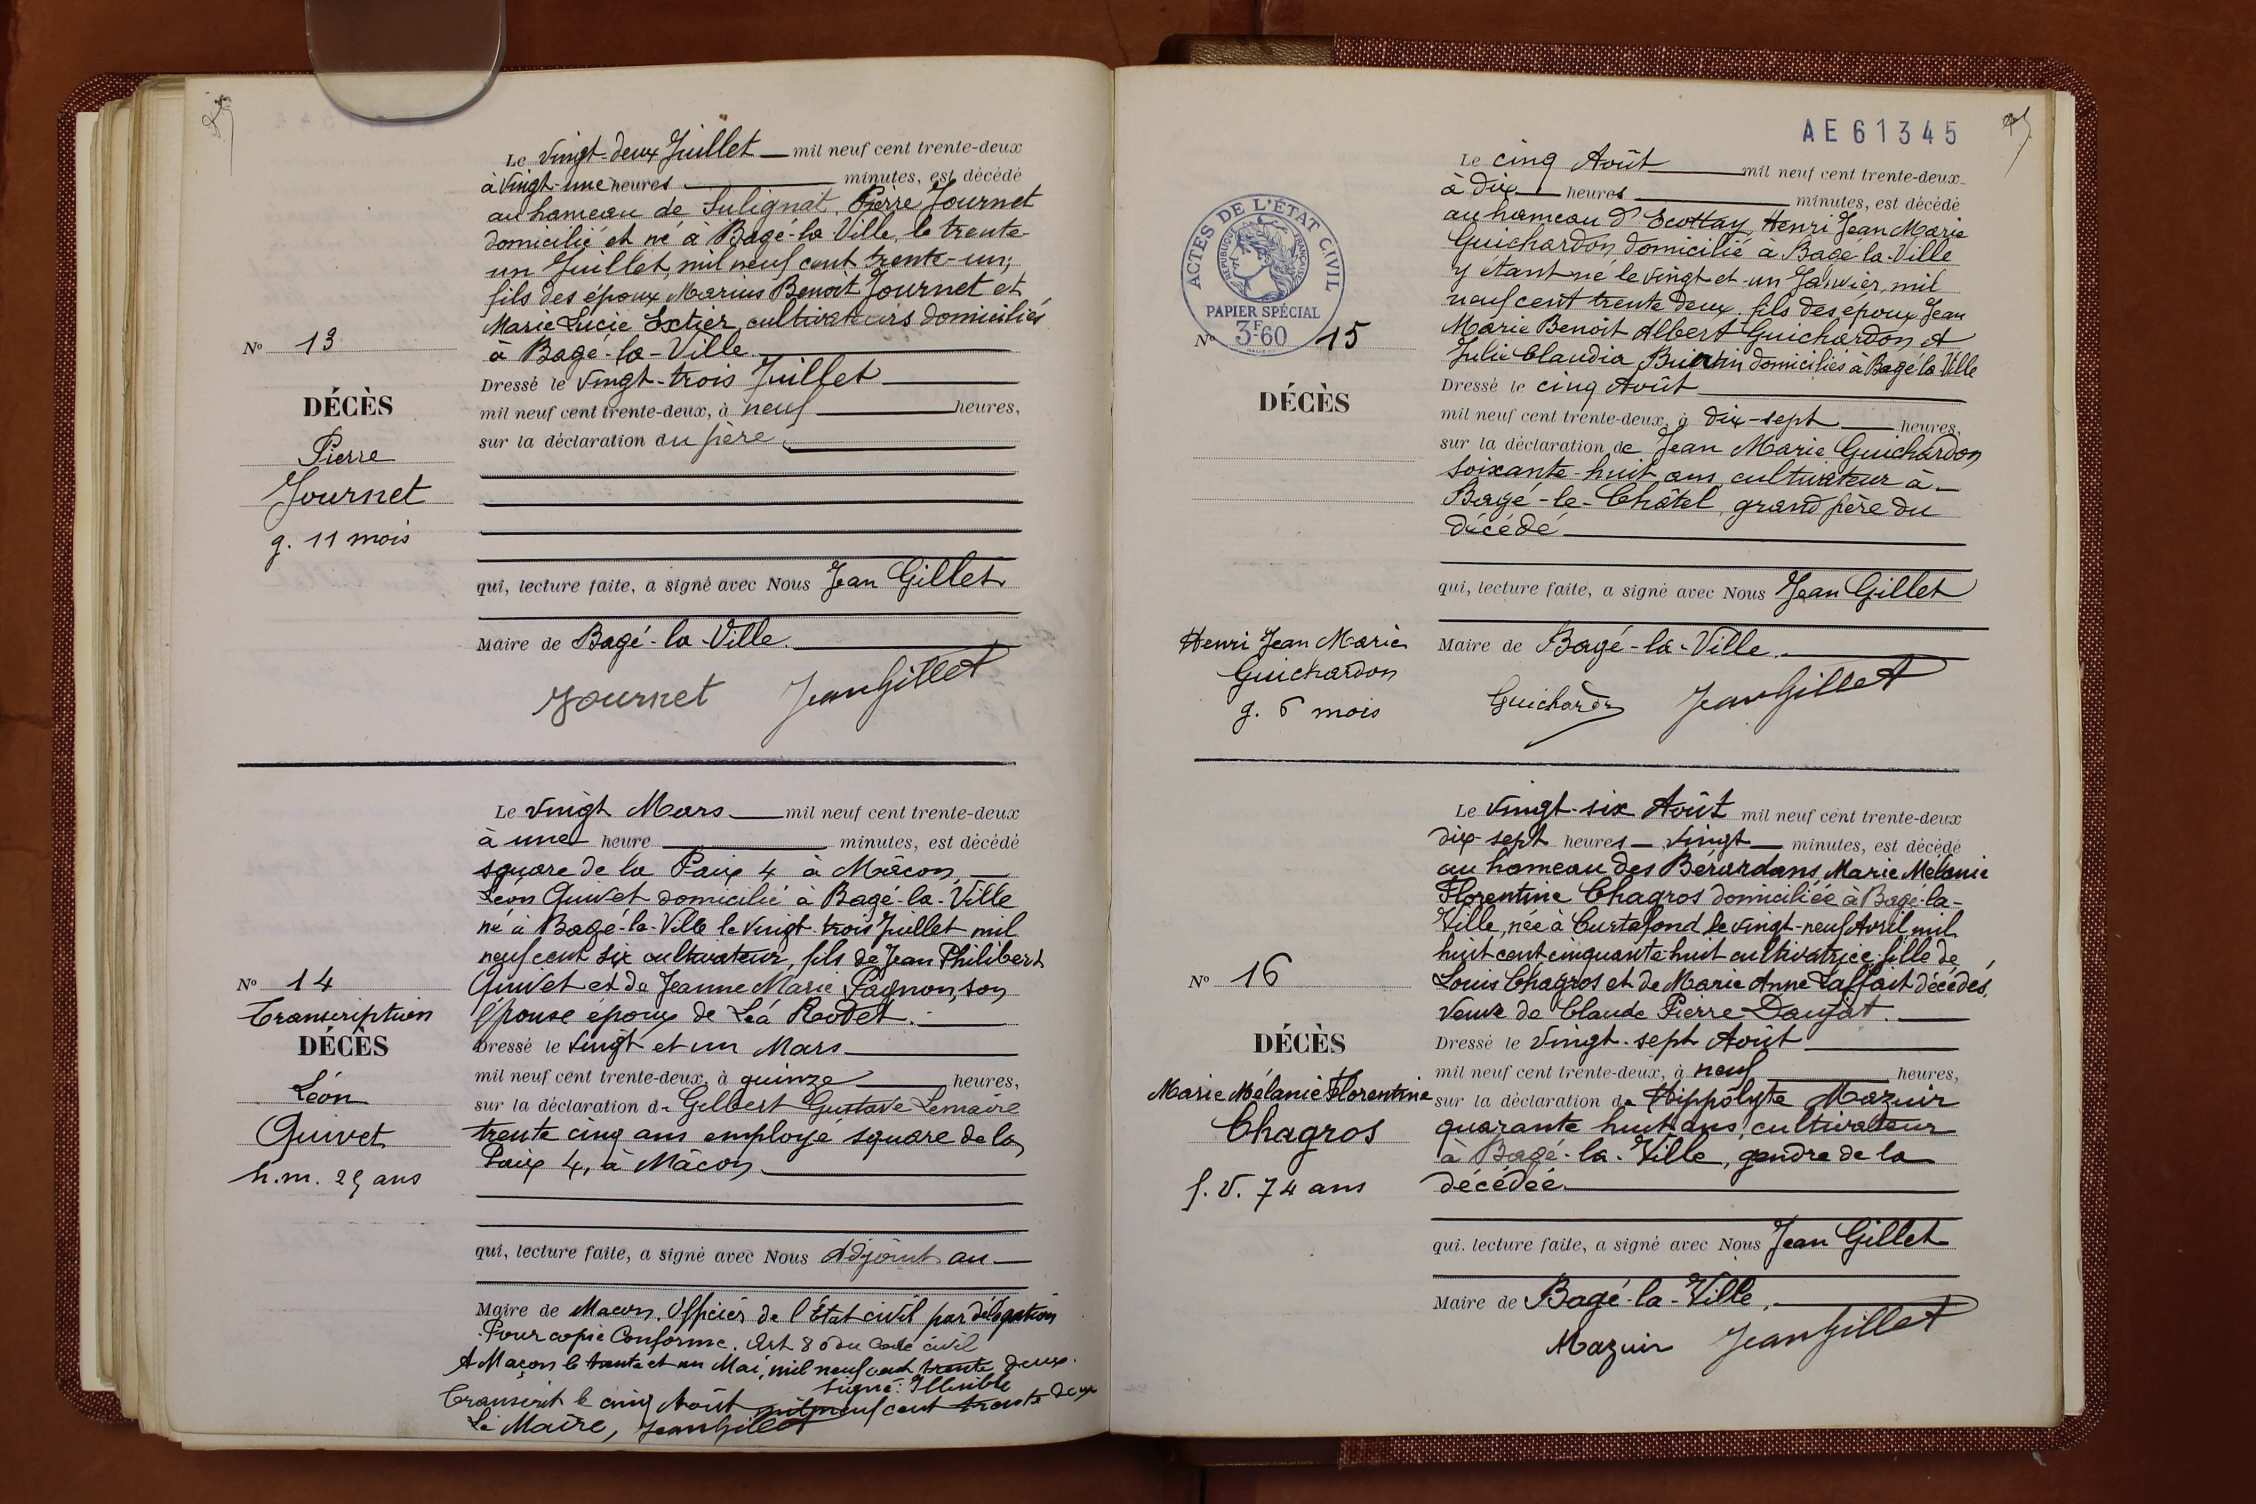 Le vingt-deux Juillet mil neuf cent trente-deux
à vingt-une heures minutes, est décédé
au hameau de Sulignat, Pierre Journet
domicilié et né à Bagé-la Ville, le trente-
un Juillet, mil neuf cent trente-un;
fils des époux Marius Benoit Journet et
Marie Lucie Extier cultivateurs domiciliés
à Bagé-la-Ville
Dressé le vingt-trois Juillet
mil neuf cent trente-deux, à neuf heures,
sur la déclaration du père
qui, lecture faite, a signé avec Nous Jean Gillet
Maire de Bagé-la-Ville.
Journet JeanGillet
No 13
DÉCÈS
Pierre
Journet
g. 11 mois
Le vingt Mars mil neuf cent trente-deux
à une heure minutes, est décédé
square de la Paix 4 à Mâcon,
Léon Quivet domicilié à Bagé-la-Ville
né à Bagé-la-Ville le vingt-trois Juillet mil
neuf cent six cultivateur, fils de Jean Philibert
Quivet et de Jeanne Marie Pagnon, son
épouse époux de Léa
Dressé le vingt et un Mars
mil neuf cent trente-deux, à quinze heures,
sur la déclaration de Gilbert Gustave Lemaire
trente cinq ans employé square de la
Paix 4, à Mâcon
qui, lecture faite, a signé avec Nous Adjoint au
Maire de Macon, Officier de l'État civil par délégation
Pour copie Conforme. Art 80 du Code civil
A Maçon le trente et un Mai, mil neuf cent trente deux.
signé: Illisible
Transcrit le cinq Août mil neuf cent trente deux
Le Maire, JeanGillet
No 14
Transcription
DÉCÈS
Léon
Quivet
h.m. 25 ans
AE61345
Le cinq Août mil neuf cent trente-deux
à dix heures minutes, est décédé
au hameau d'Ecottay, Henri Jean Marie
Guichardon, domicilié à Bagé-la-Ville
y étant né le vingt-et-un Janvier, mil
neuf cent trente deux. fils des époux Jean
Marie Benoit Albert Guichardon et
Julie Claudia domiciliés à Bagé la Ville
Dressé le cinq Août
mil neuf cent trente-deux, à dix-sept heures,
sur la déclaration de Jean Marie Guichardon
soixante-huit ans, cultivateur à
Bagé-le-Châtel, grand père du
décédé
qui, lecture faite, a signé avec Nous Jean Gillet
Maire de Bagé-la-Ville.
JeanGillet
ACTES DE L'ÉTAT CIVIL
RÉPUBLIQUE FRANÇAISE
PAPIER SPÉCIAL
3F60
No 15
DÉCÈS
Henri Jean Marie
Guichardon
g. 6 mois
Le vingt-six Août mil neuf cent trente-deux
dix-sept heures vingt minutes, est décédé
au hameau des Bérardans, Marie Mélanie
Florentine Chagros domiciliée à Bagé-la-
Ville, née à Curtafond le vingt-neuf Avril, mil
huit cent cinquante-huit cultivatrice, fille de
Louis Chagros et de Marie Anne Laffait décédés,
veuve de Claude Pierre Daujat.
Dressé le vingt-sept Août
mil neuf cent trente-deux, à neuf heures,
sur la déclaration de Hippolyte Mazuir
quarante huit ans, cultivateur
à Bagé-la-Ville, gendre de la
décédée.
qui, lecture faite, a signé avec Nous Jean Gillet
Maire de Bagé-la-Ville.
Mazuir JeanGillet
No 16
DÉCÈS
Marie Mélanie Florentine
Chagros
f.v. 74 ans